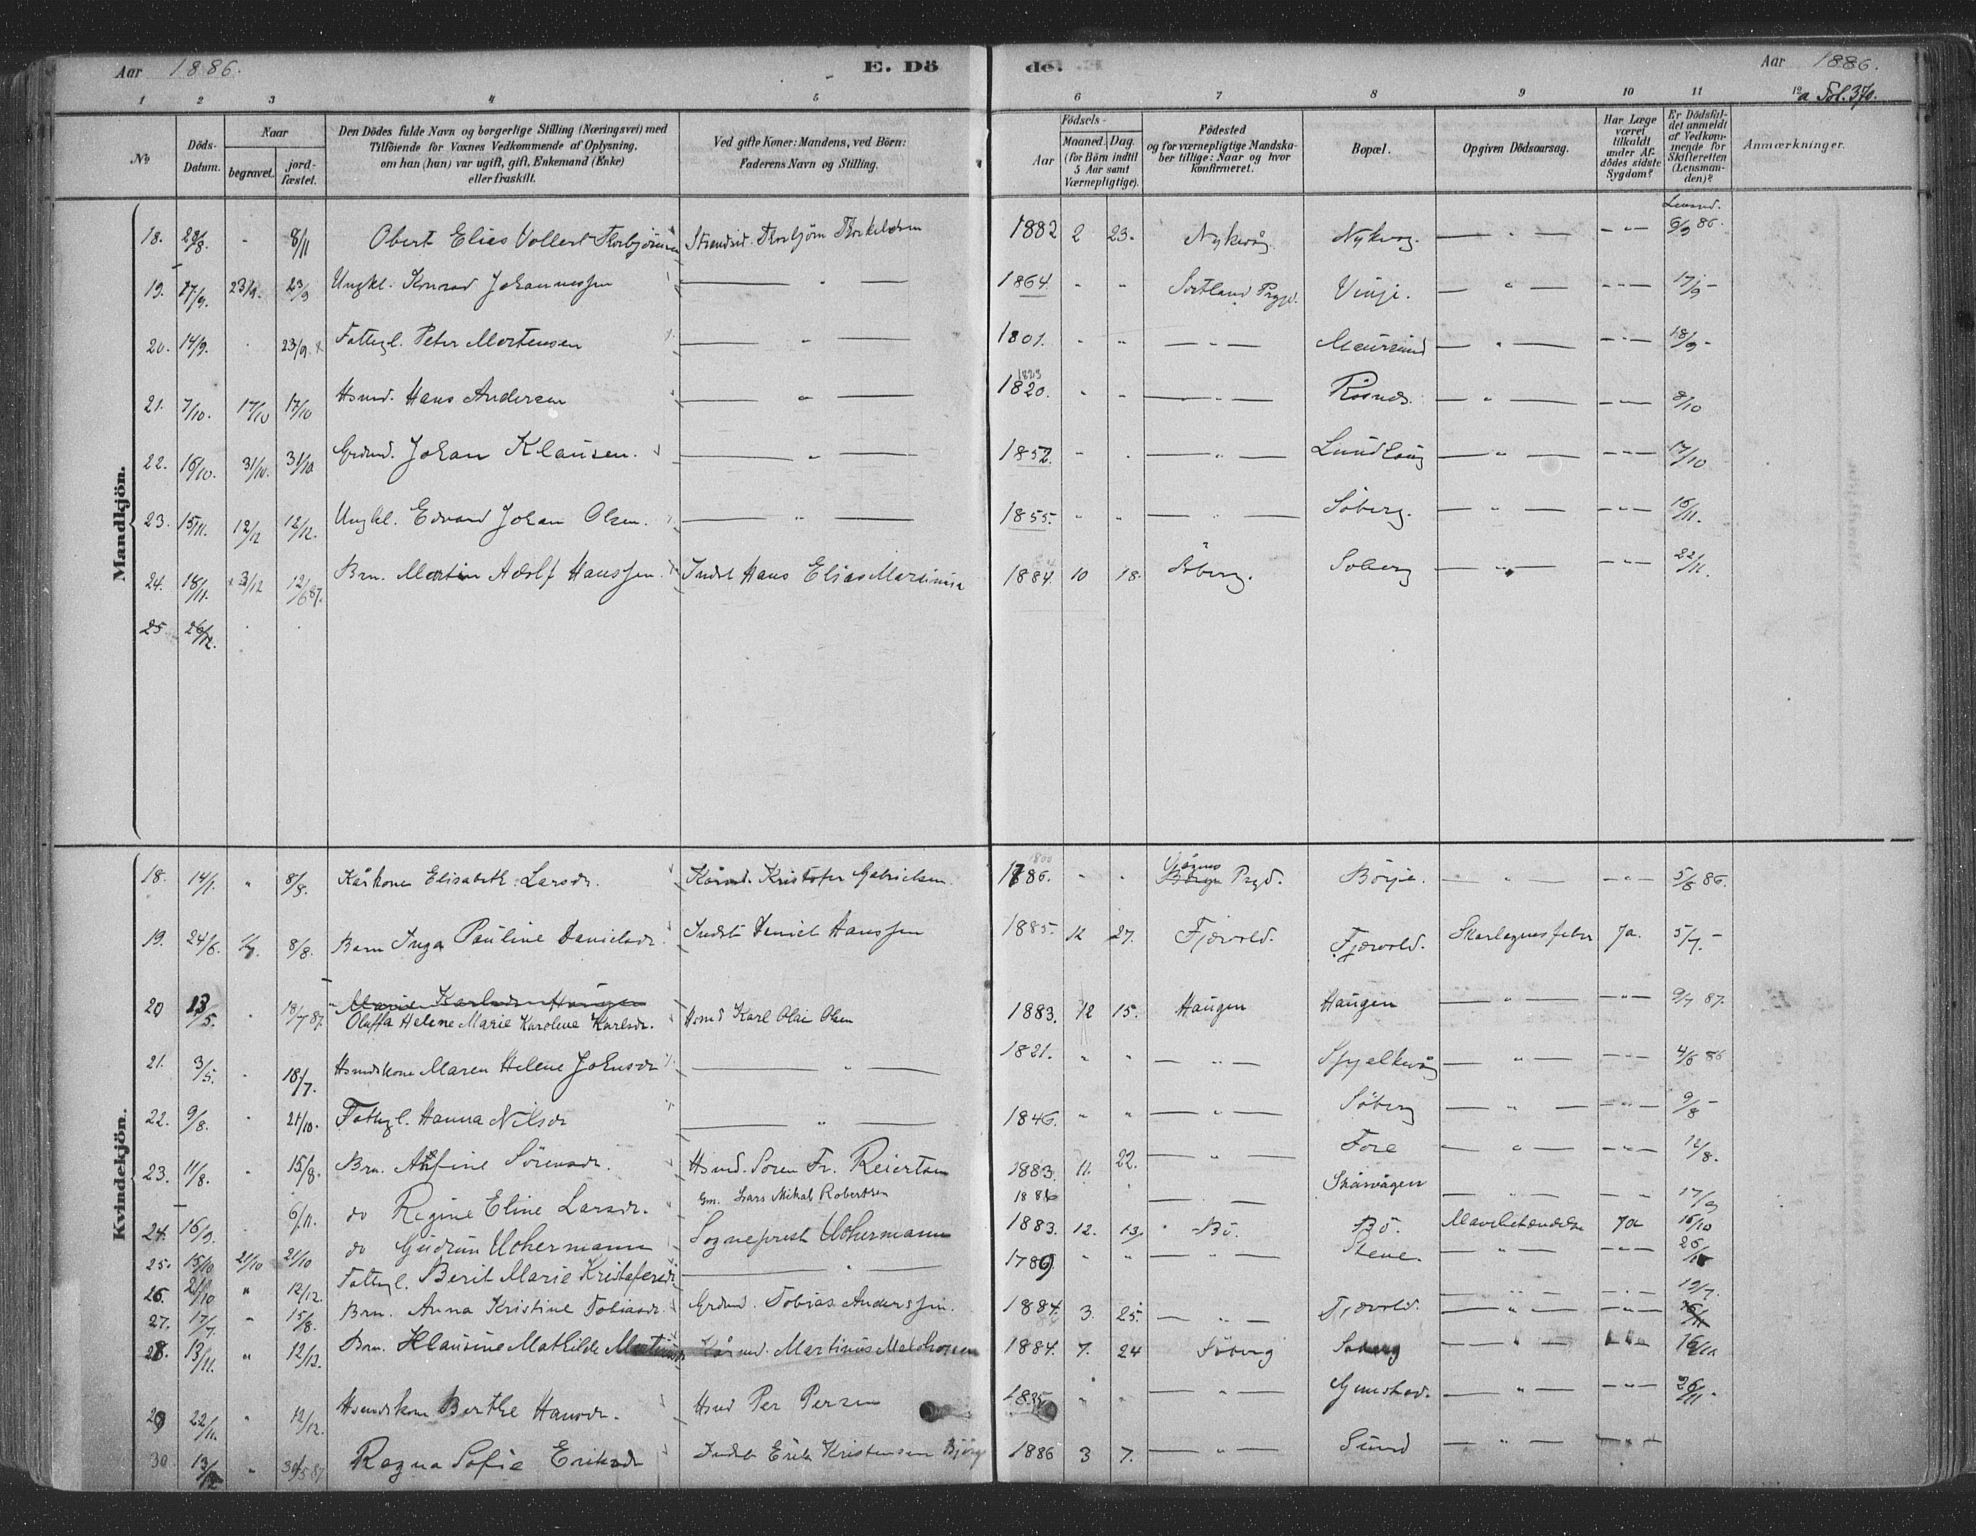 Aar 1886. E. Dö
de. Aar 1886.
a Fol. 370.
1 2 3 4 5 6 7 8 9 10 11 12
No Döds-Datum. Naar begravet. jord-fæstet.
Den Dödes fulde Navn og borgerlige Stilling (Næringsvei) med
Tilföiende for Voxnes Vedkommende af Oplysning.
om han (hun) var ugift, gift, Enkemand (Enke)
eller fraskilt.
Ved gifte Koner: Mandens, ved Börn:
Faderens Navn og Stilling.
Födsels-
Aar Maaned. Dag.
(for Börn indtil
5 Aar samt
Værnepligtige).
Födested
og for værnepligtige Mandska-
ber tillige: Naar og hvor
konfirmeret.
Bopæl.
Opgiven Dödsaarsag.
Har Læge
været
tilkaldt
under Af-
dödes sidste
Sygdom?
Er Dödsfal-
det anmeldt
af Vedkom-
mende for
Skifteretten
(Lensman-
den)?
Anmærkninger.
Mandkjön.
18. 8/11 Obert Elies Vollert Thorbjörnsen Strandsid. Thorbjörn Thorkildsen 1882 2 23. Nykvåg Nykvåg. — " — - " - Lensmd. 6/9 86.
19. 17/9. 23/9. 23/9 Ungkl. Konrad Johannessen — " — 1864. " " Sortland Prgjd. Vinje. — " — - " - 17/9 -
20. 14/9. 23/9. Fattigl. Peter Mortensen — " — 1801. " " — " — Maursund — " — - " - 18/9 -
21. 7/10. 17/10 17/10 Hsmd. Hans Andersen — " — 1820. " " — " — Risnes. — " — - " - 8/10
22. 16/10. 31/10. 31/10 Grdmd. Johan Klausen. — " — 1852. " " — " — — " — - " - 17/10
23. 15/11. 12/12 12/12. Ungkl. Edvard Johan Olsen. — " — 1855. " " — " — Söberg. — " — - " - 16/11.
24. 18/11. 3/12 12/6 87. Brn. Martin Adolf Hanssen. Indst Hans Elias 1884. 10 18. Söberg. Söberg — " — - " - 22/11.
25. 26/12.
Kvindekjön.
18. 14/1. " 8/8. Kårkone Elisabeth Larsdr. Kårmd. Kristofer Gabrielsen. 1786. " " Prgd. Börje. — " — - " - 5/8 86.
19. 24/6. 8/8. Barn Inga Pauline Danielsdr. Indst Daniel Hanssen 1885. 12 27. Fjærvold. Fjærvold. Skarlagensfeber Ja. 5/7. -
20 13/5. 18/7 87. Marie Karlsdr Haugen
Olaffa Helene Marie Karoline Karlsdr. Hsmd Karl Olai Olsen 1883. 12 15. Haugen Haugen — " — - " - 9/7 87.
21. 3/5. " 18/7. Hsmdskone Maren Helene Johnsdr — " — 1821. " " — " — Spjelkvåg — " — - " - 4/6 86
22. 9/8. " 21/10. Fattigl. Hanna Nilsdr — " — 1846. " " — " — Söberg — " — - " - 9/8 -
23. 11/8. 15/8. Brn. Sörensdr. Hsmd. Sören Fr. Reiertsen 1883. 11. 22. — " — Fore — " — - " - 12/8.
24. 16/9. 6/11. do Regine Eline Larsdr. Gm. Lars Mikal Robertsen 1886 — " — Skårvågen — " — - " - 17/9
25. 15/10 21/10 21/10 do Gudrun Uchermann Sogneprest Uchermann 1883. 12. 13. Bö. Bö. Mavebetændelse Ja 16/10
26. 21/10 " 12/12. Fattigl. Berit Marie Kristofersdr — " — 1789 " " — " — Steve. — " — - " -
27. 17/7 " 15/8. Brn. Anna Kristine Tobiasdr Grdmd. Tobias Anderssen. 1884. 3. 25. — " — Fjærvold. — " — 19/7.
28. 13/11. " 12/12. Brn. Klausine Mathilde Kårmd. Martinus Melchorsen 1884. 7. 24 Söberg Söberg — " — - " - 16/11
29 22/11. " 12/12. Hsmdskone Berthe Hansdr. Hsmd Per Persen 1835. " " — " — Gimstad. — " — - " - 26/11 -
30 13/12 " 30/5 87 Ragna Sofie Eriksdr Indst Erik Kristensen 1886 3 7. — " — Sund — " —